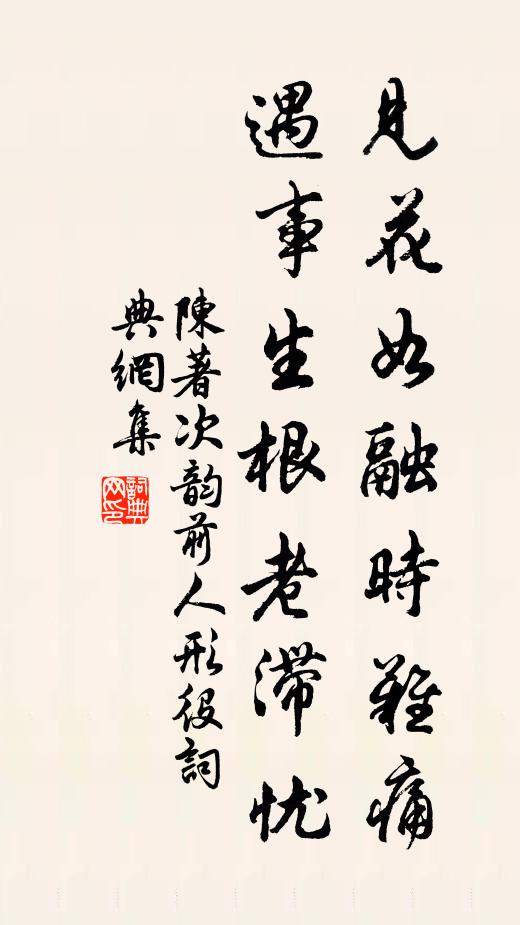 見花如融時難痛
遇事生根老滯忧
陳著次韵前人形役詞
典網集
詞典网印